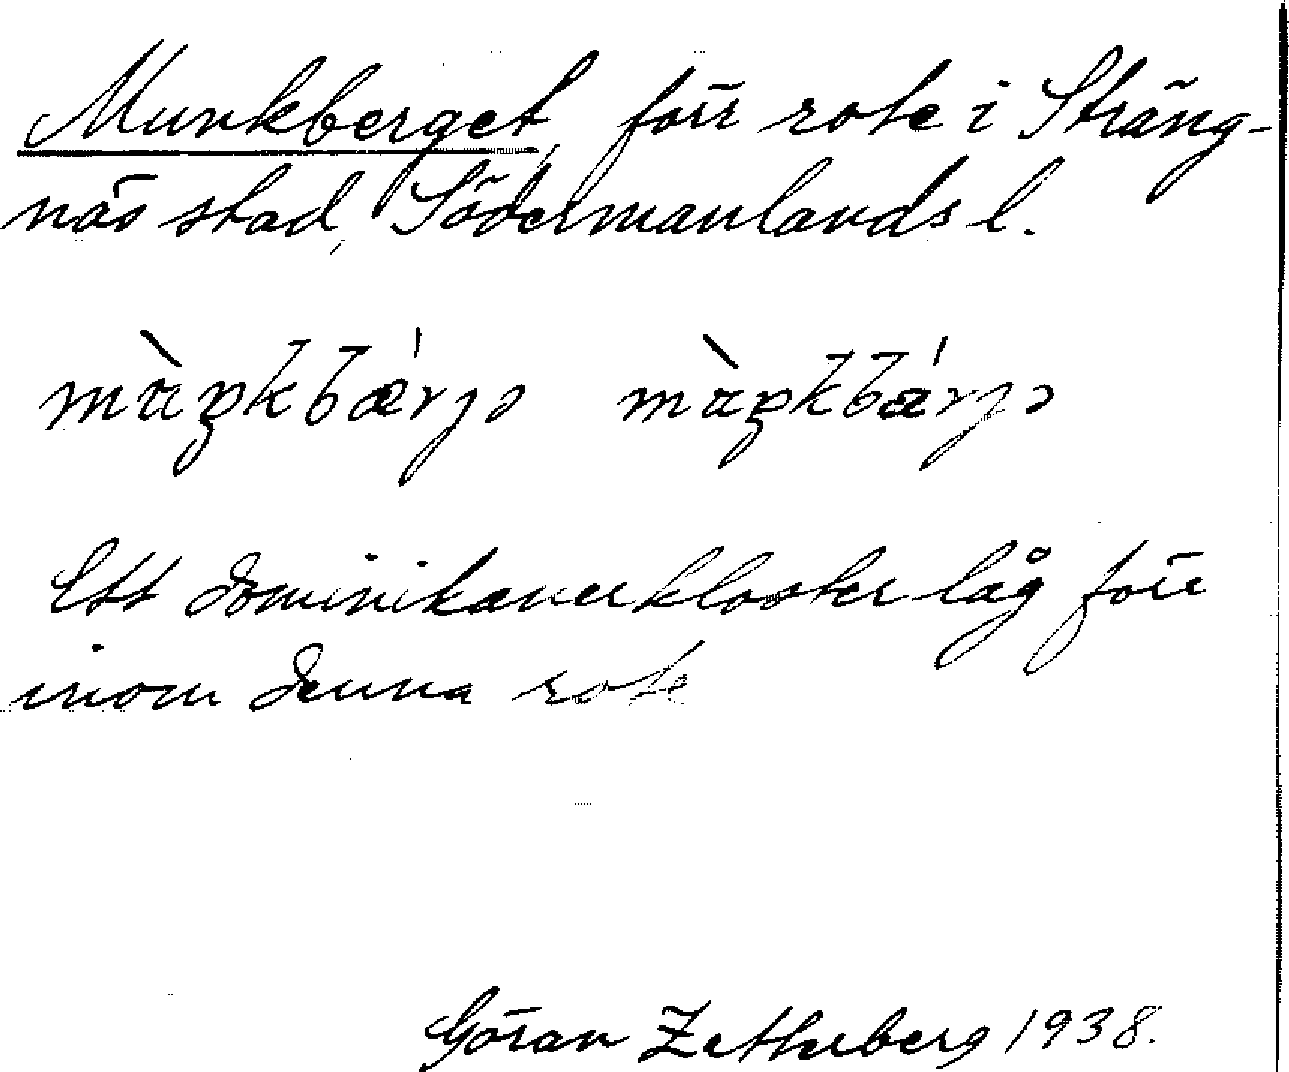 Munkberget, förr rote i Sträng-
näs stad, Södermanlands l.
Ett dominikanerkloster låg förr
inom denna rote
Göran Zetherberg 1938.